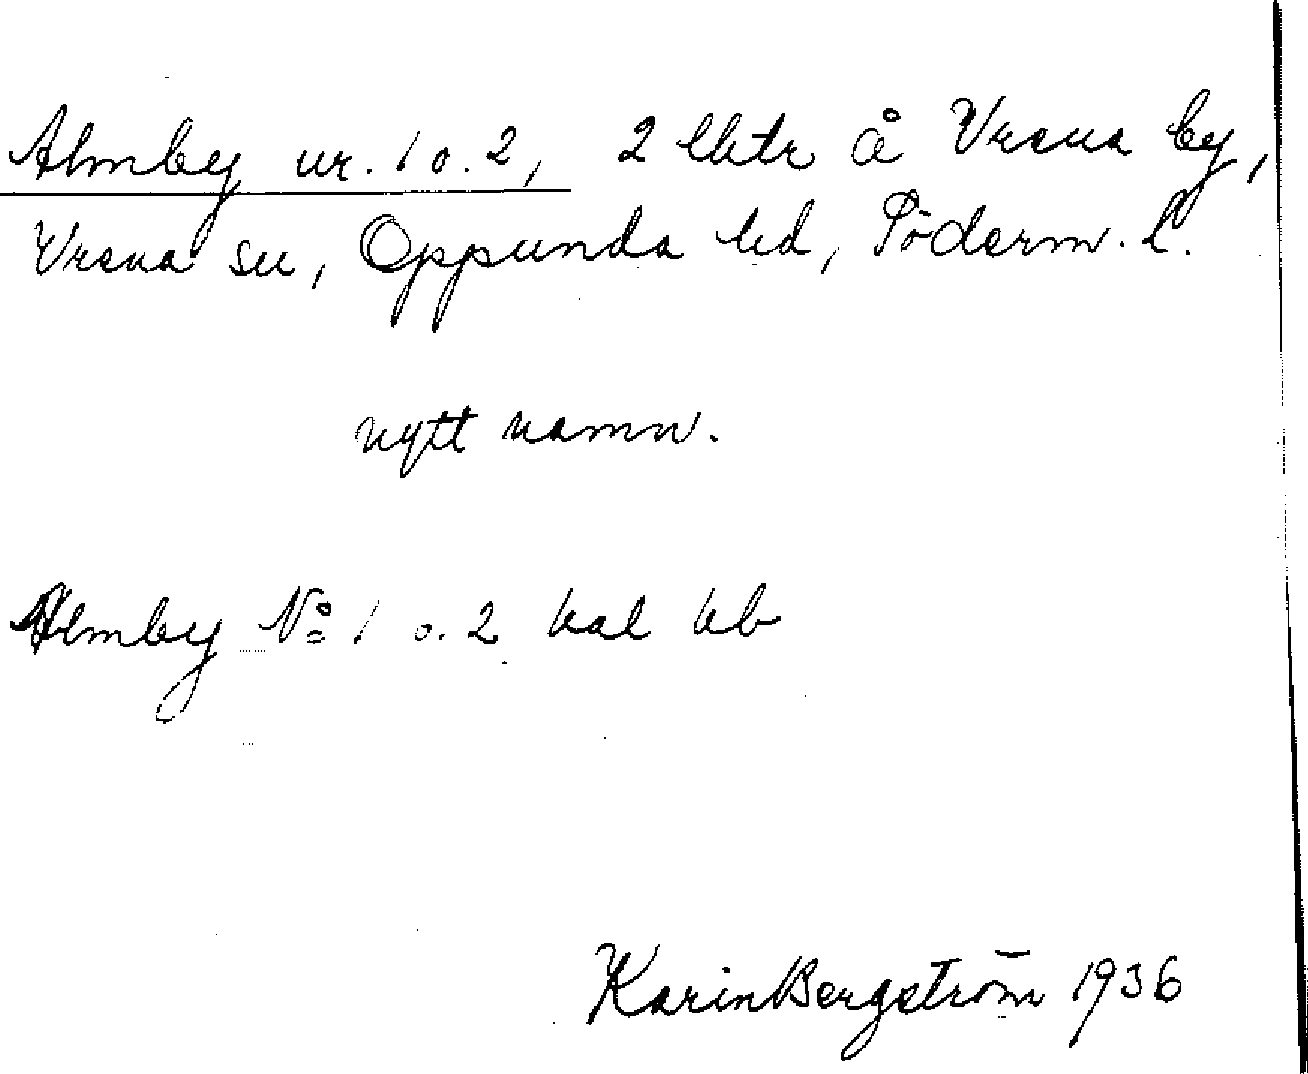 Almby nr. 1 o. 2, 2 lhtr å Vrena by,
Vrena sn, Oppunda hd, Söderm. L.
nytt namn.
Almby No 1 o. 2 hal kb
Karin Bergström 1936